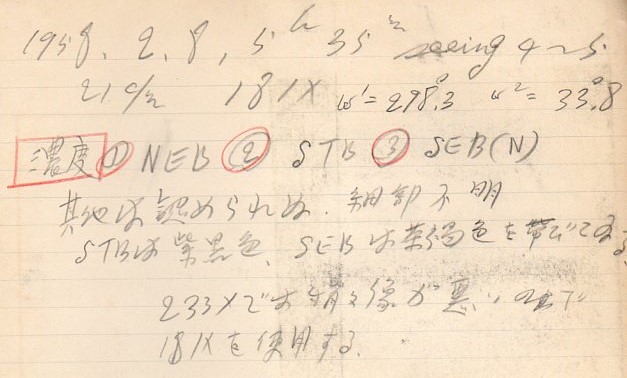 1958. 2. 8, 5h 35m seeing 4~5
21c/m 181X ω¹=298°.3 ω²=33°.8
濃度 ① NEB ② STB ③ SEB(N)
其他は認められぬ. 細部不明
STBは紫黒色、SEBは茶褐色を帯びてゐる
233Xでは像が悪いので
181Xを使用する.